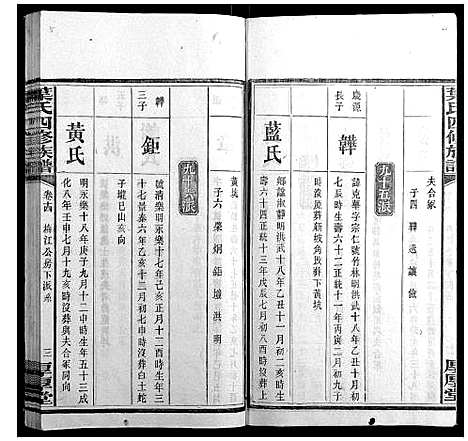 葉氏四修族譜
夫合冢
子四 鞾 遜 讓 儉
九十五派
慶源
長子
鞾
諱克華字宗仁號竹林明洪武十八年乙丑
壽六十二正統十一年丙寅二月初九子
時沒葬新坡角段縣下黃坑
藍氏
郷謚淑靜明洪武十八年乙丑十一月初三亥時生
壽六十四正統十三年戊辰七月初八酉時沒葬上
黃坑
子六 榮 炯 鉅 壚 洪 明
九十六派
鞾
三子
鉅
號清溪明永樂十七年己亥正月十二酉時生年三
十七景泰六年乙亥十二月初七申時沒葬白土蛇
子壠巳山亥向
黃氏
明永樂十八年庚子九月十二申時生年五十三成
化八年壬申七月十九亥時沒葬與夫合冢同向
葉氏四修族譜
卷十四
梅江公房下派系
三
厚堂